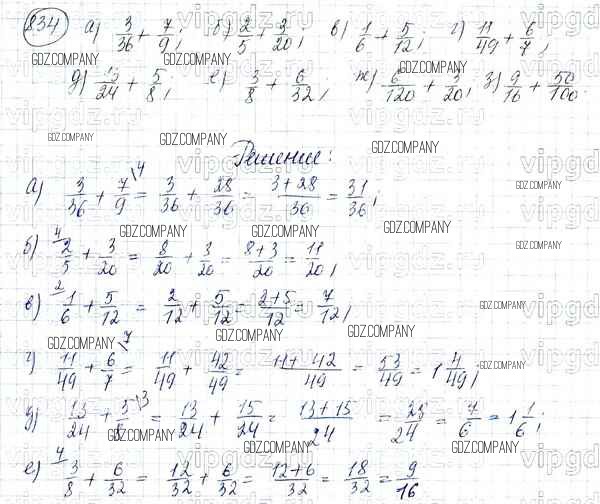 834 а) 3/36 + 7/9; б) 2/5 + 3/20; в) 1/6 + 5/12; г) 11/49 + 6/7;
д) 13/24 + 5/8; е) 3/8 + 6/32; ж) 6/120 + 3/20; з) 9/16 + 50/100.
Решение:
а) 3/36 + 7/9 \4 = 3/36 + 28/36 = 3+28/36 = 31/36;
б) 4/ 2/5 + 3/20 = 8/20 + 3/20 = 8+3/20 = 11/20;
в) 2/ 1/6 + 5/12 = 2/12 + 5/12 = 2+5/12 = 7/12;
г) 11/49 + 6/7 \7 = 11/49 + 42/49 = 11+42/49 = 53/49 = 1 4/49;
д) 13/24 + 5/8 \3 = 13/24 + 15/24 = 13+15/24 = 28/24 = 7/6 = 1 1/6;
е) 4/ 3/8 + 6/32 = 12/32 + 6/32 = 12+6/32 = 18/32 = 9/16
GDZ.COMPANY
vipgdz.ru